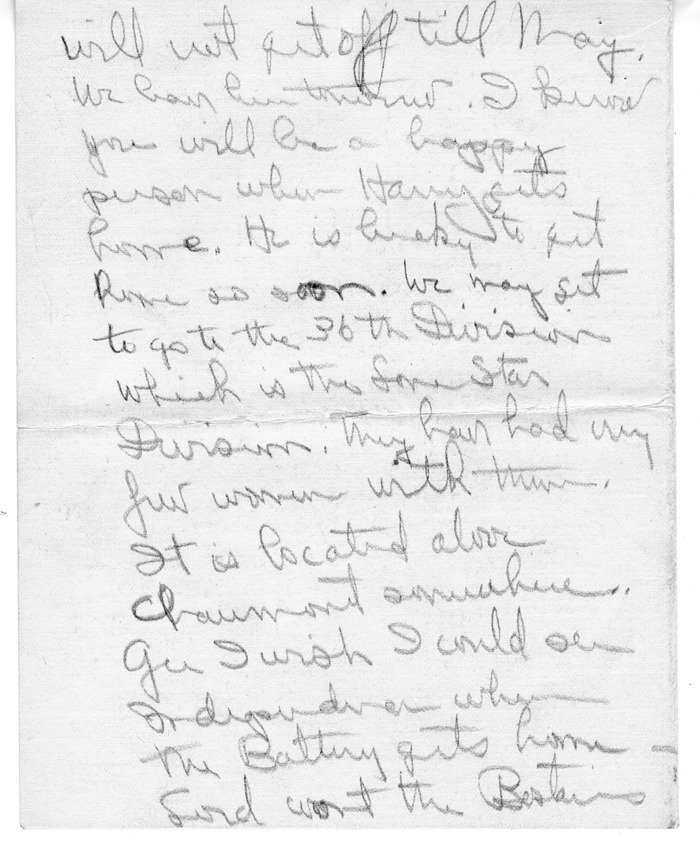 will not get off till May.
We have him tomorrow. I know
you will be a happy
person when Harry gets
home. He is lucky to get
home so soon. We may get
to go to the 36th Division
which is the Lone Star
Division. They have had very
few women with them.
It is located above
Chaumont somewhere.
Gee I wish I could see
Independence when
the Battery gets home
Lord wont the